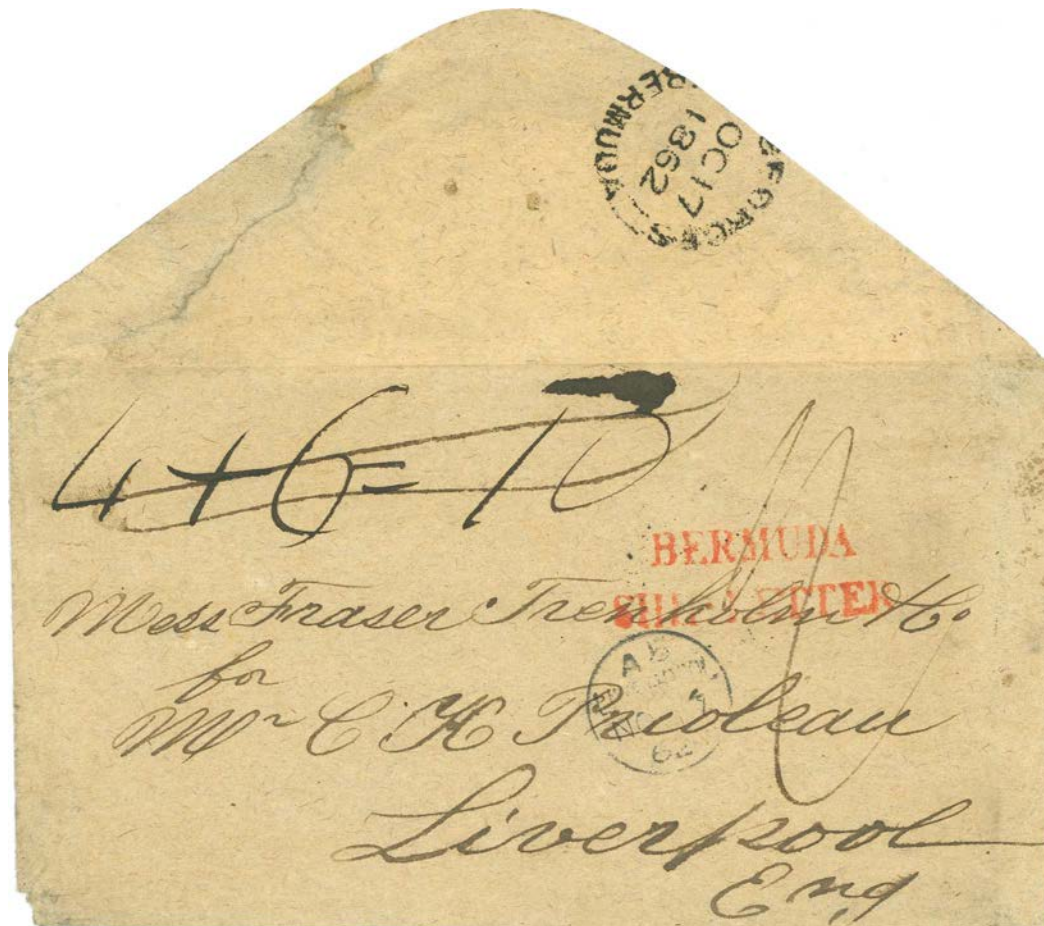 BERMUDA
OC 17
1862
4 + 6 = 10
BERMUDA
SHIP LETTER
Mess Fraser Trenholm & Co
for
Mr C K Prioleau
Liverpool
Eng
62